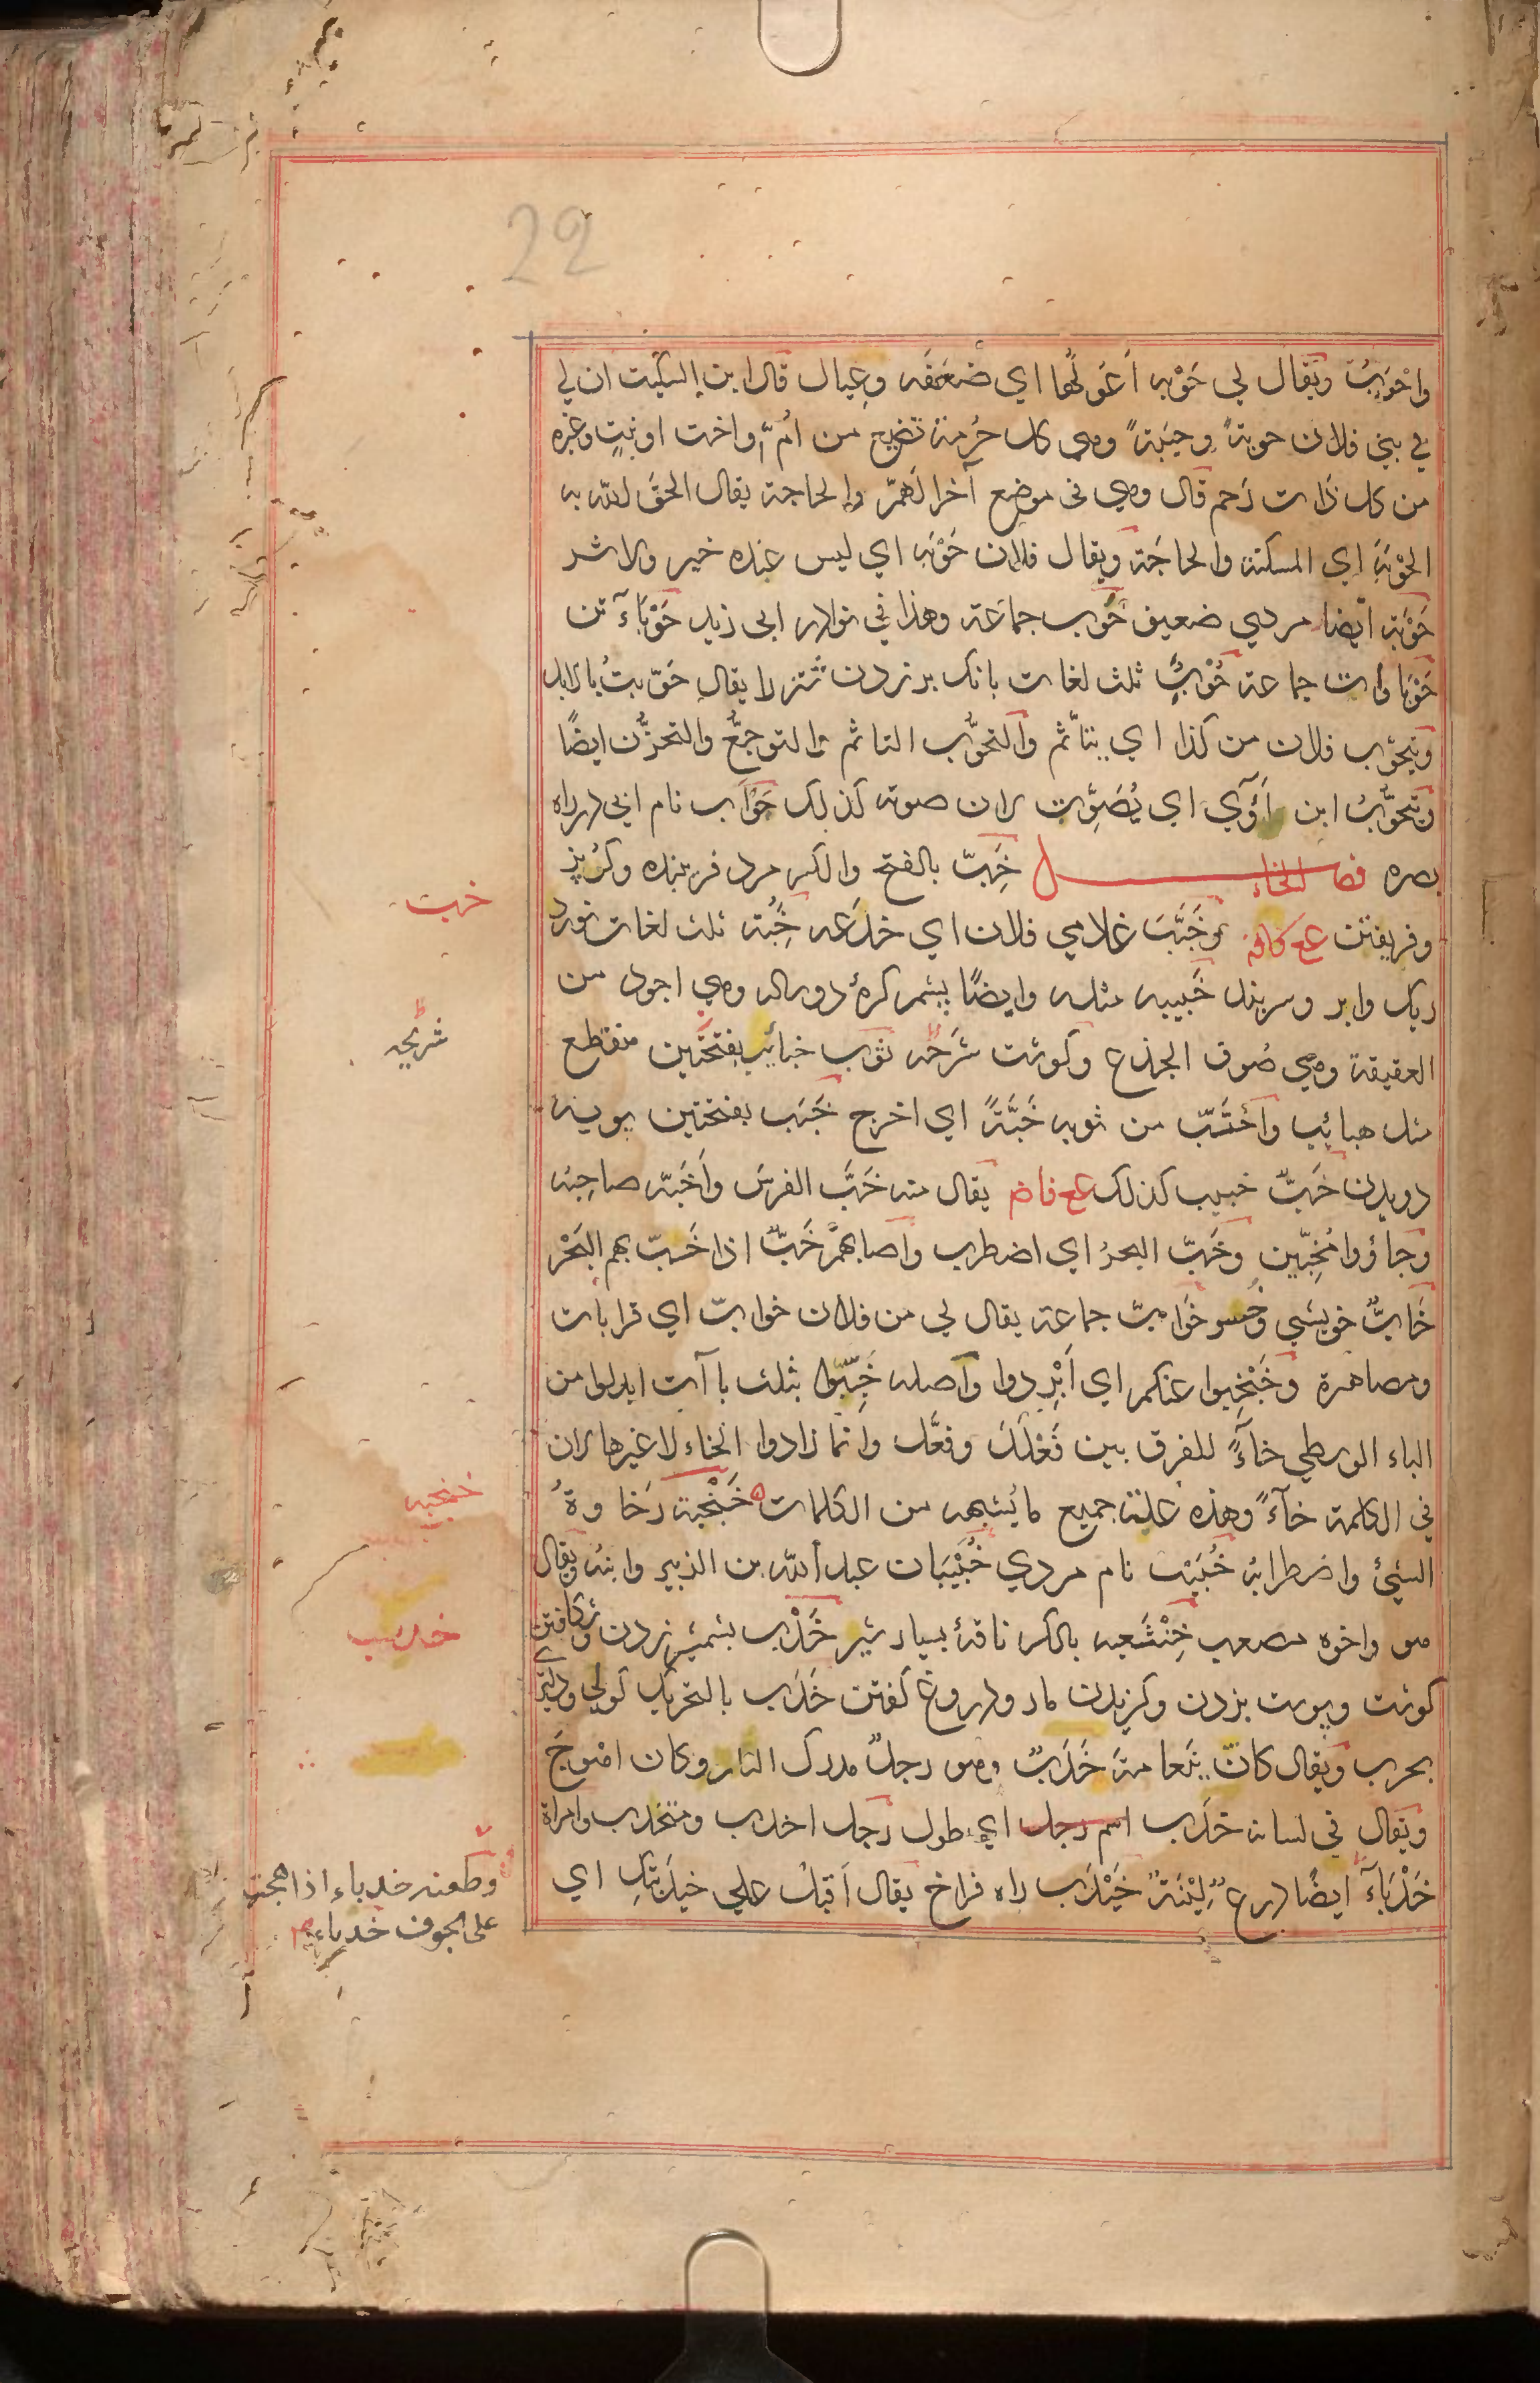 22
واحْوَبْتُ ويُقال لي حَوْبه أعُولُها اي ضعفه وعيال قال ابن السكيت ان لي
في بني فلان حوبةً وحيبَةً وهي كل حُرمة تضيع من اُمٍّ او اخت او بنتٍ وغيره
من كل ذات رَحم قال وهي في موضع آخر الهَمّ والحاجة يقال الحقَ الله به
الحَوْبَةَ اي المسكنة والحاجَة ويقال فلان حَوْبَة اي ليس عنده خير ولا شر
حَوْبَة ايضا مردي ضعيف حُوَب جماعة وهذا في نوادر ابي زيد حَوْبَآء تن
حَوْباوات جماعة حَُوْبٌِ ثلث لغات بانك بر زدن شتر لا يقال حَوّبتُ بالابل
ويتحوّب فلان من كذا اي يتأثم والتحوُّب التاثم والتوجعُّ والتحزُّن ايضًا
ويتحوَّبُ ابن آوي اي يُصَوِّت لان صوته كذلك حَوْأب نام ابي در راه
بصره فصل الخاء خَِبّ بالفتح والكسر مرد فريبنده وكُربز
وفريفتن ع ع كافة وخَبَّبَ غلامي فلان اي خدَعه خَُِبّة ثلث لغات نورد
ريك وابر وسربند خَبيبه مثله وايضًا پشم كرۀ دوساله وهي اجود من
العقيقة وهي صُوف الجذع وكوشت شرحَه ثوب خبائب بفتحتين منقطع
مثل هبائب واخْتَبّ من ثوبه خَبَّةً اي اخرج خَبَب بفتحتين پويه
دويدن خَبٌّ خبيب كذلك ع ع فاض يقال منه خَبَّ الفرسَ واَخَبّه صاحبُه
وجاؤوا مُخِبّين وخَبّ البحرُ اي اضطرب واصابهمْ خَبٌّ اذا خَبّ بهم البَحْر
خَابٌّ خويشي وخُسر خَوابّ جماعة يقال لي من فلان خوابّ اي قرابات
ومصاهرة وخَبْخِبوا عنكم اي اَبْرِدوا واصله خَبِّبوا بثلث باآت ابدلوا من
الباء الوسطي خاءً للفرق بين فَعْلَلَ وفعَّل وانما زادوا الخاء لا غيرها لان
في الكلمة خآءً وهذه علة جميع ما يُشبهه من الكلمات خَبْخَبة رَخاوةُ
الشيئ واضطرابُه خُبَيْب نام مردي خُبَيْبَان عبد الله بن الزبير وابنه ويقال
هو واخوه مصعب خِنْثَعبه بالكسر ناقۀ بسيار شير خَدْب بشمشير زدن وشكافتن
كوشت وپوست بزدن وكزيدن مار ودروغ كفتن خَدَب بالتحريك كولي ودليري
بحرب ويقال كانَ بنَعامةَ خَدَبٌ وهو رجلٌ مدرك الثار وكان اهْوجَ
ويقال في لسانه خدَب اي طول رَجل اخدب ومتخدب وامراة
خَدْبَآءُ ايضًا درع لَيّنَةٌ خَيْدَب راه فراخ يقال اَقبلْ علي خيدَبَتِك اي
خب
شريحه
خبخبه
خدب
وطعنه خدباء اذا هجمت
على الجوف خدباء